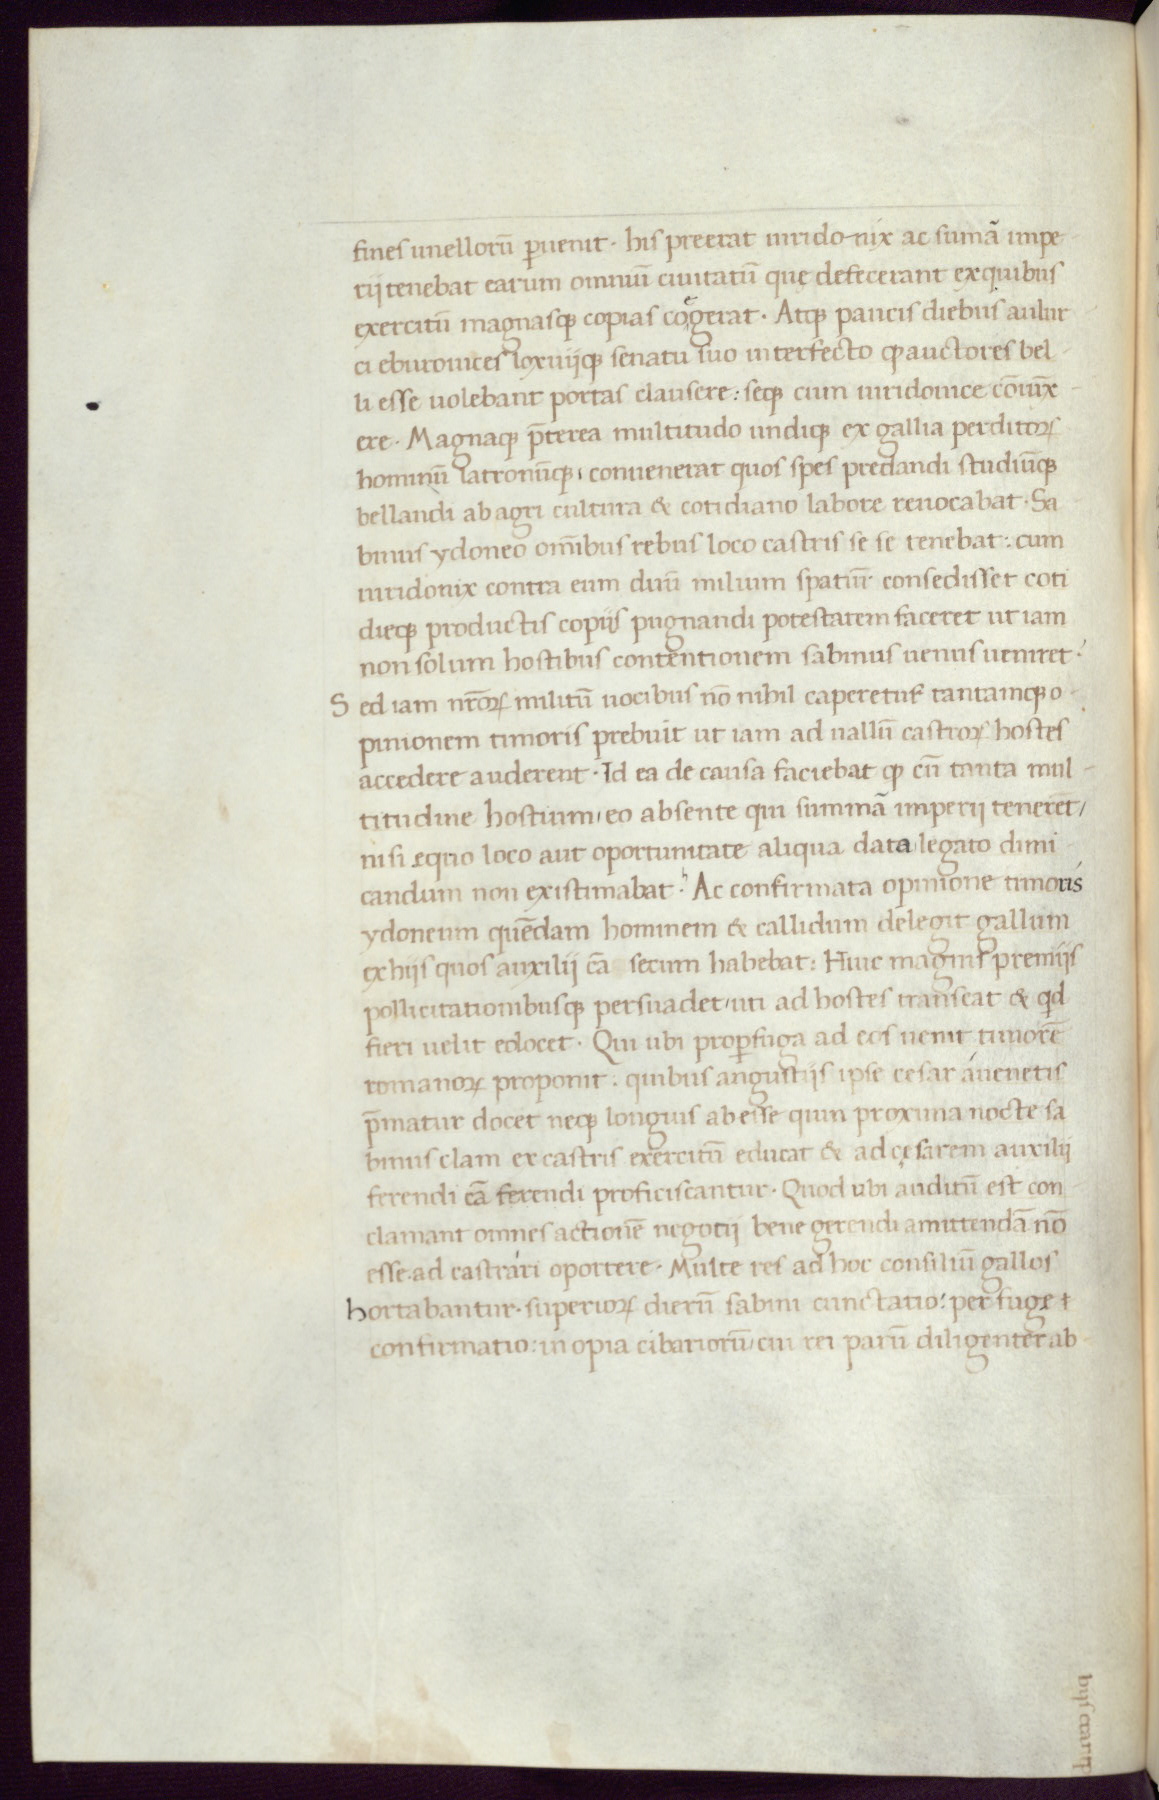 fines unellorū ꝑuenit · his preerat uirido-nix ac sumā impe
rij tenebat earum omniū ciuitatū quę defecerant ex quibus
exercitū magnasqꝫ copias coegerat · Atqꝫ paucis diebus aulir
ci eburonices loxuijqꝫ senatu suo interfecto qꝫ auctores bel
li esse uolebant portas clausere : seqꝫ cum uiridouice cōiūx
ere · Magnaqꝫ p̄terea multitudo undiqꝫ ex gallia perditoꝝ
hominū latronūqꝫ conuenerat quos spes predandi studiūqꝫ
bellandi ab agri cultura & cotidiano labore reuocabat · Sa
binus ydoneo om̄ibus rebus loco castris se se tenebat : cum
uiridonix contra eum duū milium spatiū consedisset coti
dieqꝫ productis copijs pugnandi potestatem faceret ut iam
non solum hostibus contentionem sabinus uenis ueniret ·
Sed iam nr̄oꝝ militū uocibus nō nihil caperetur tantamqꝫ o
pinionem timoris prebuit ut iam ad uallū castroꝝ hostes
accedere auderent · Id ea de causa faciebat qꝫ cū tanta mul
titudine hostium / eo absente qui summā imperij teneret /
nisi equo loco aut oportunitate aliqua data legato dimi
candum non existimabat · Ac confirmata opinione timoris
ydoneum quēdam hominem & callidum delegit gallum
ex hijs quos auxilij cā secum habebat : Huic magnis premijs
pollicitationibusqꝫ persuadet / uti ad hostes transeat & qd
fieri uelit edocet · Qui ubi proꝑfuga ad eos uenit timorē
romanoꝝ proponit : quibus angustijs ipse cesar a uenetis
p̄matur docet neqꝫ longius abesse quin proxima nocte sa
binus clam ex castris exercitū educat & ad cęsarem auxilij
ferendi cā ferendi proficiscantur · Quod ubi auditū est con
clamant omnes actionē negotij bene gerendi amittendā nō
esse · ad castra iri oportere · Multe res ad hoc consiliū gallos
hortabantur · superioꝝ dierū sabini cunctatio : per fugę
confirmatio : in opia cibariorū / cui rei parū diligenter ab